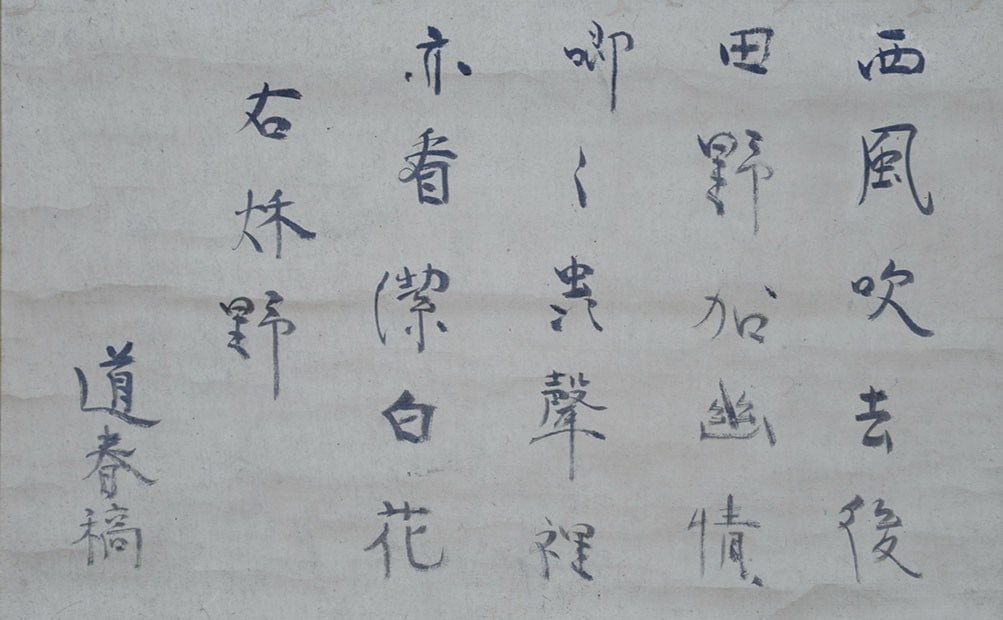 西風吹去後
田野加幽情
唧々蟲聲裡
亦看潔白花
右秌野
道春稿